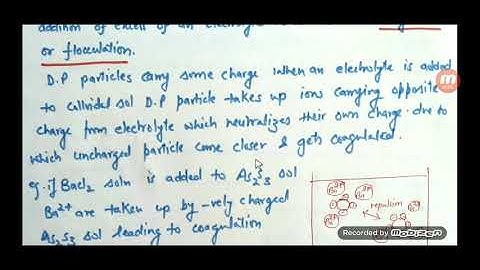 addition of excess of an electrolyte
or flocculation.
D.P particles carry some charge when an electrolyte is added
to colloidal sol D.P particle takes up ions carrying opposite
charge from electrolyte which neutralizes their own charge due to
which uncharged particle come closer & gets coagulated.
eg. if BaCl2 soln is added to As2S3 sol
Ba2+ are taken up by -vely charged
As2S3 sol leading to coagulation
Ba2+
Ba2+
repulsion
Recorded by
MOBIZEN